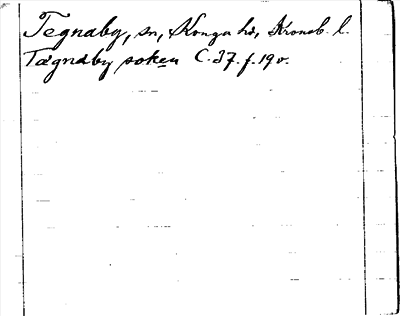 Tegnaby, sn, Konga hd, Kronob. l.
Tægnaby soken C. 37. f. 19 v.